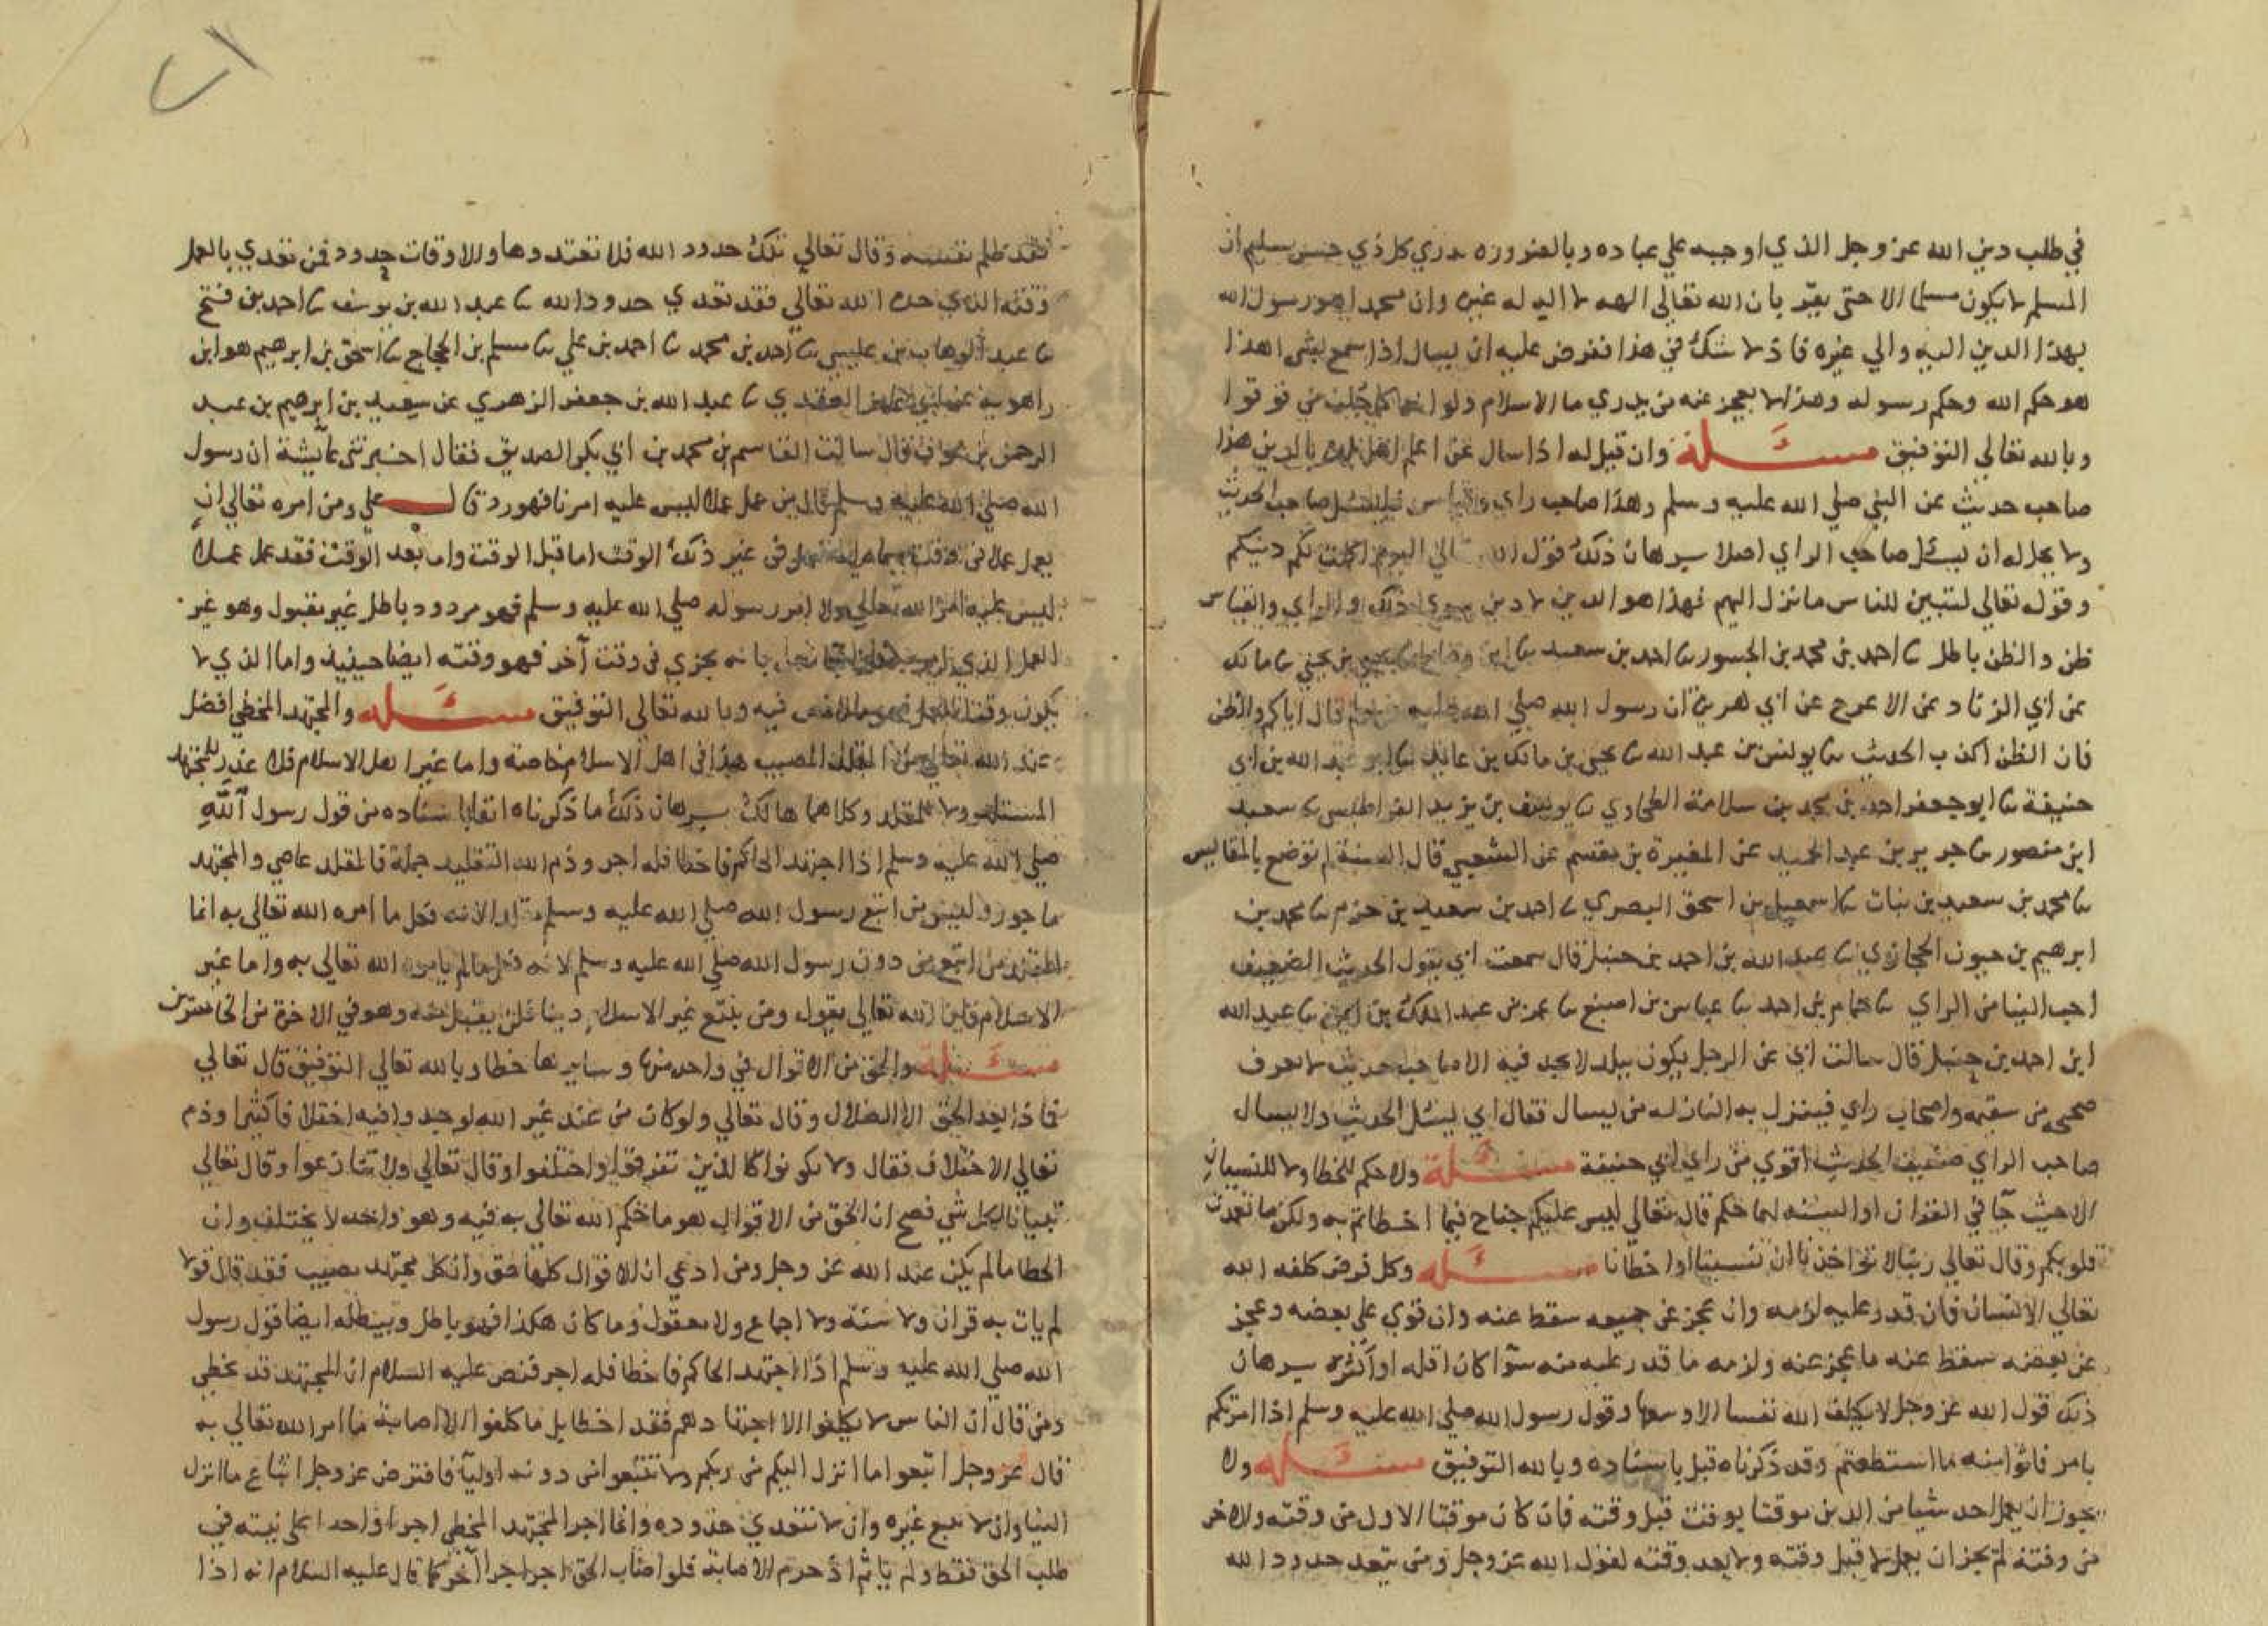 في طلب دين الله عز وجل الذي اوجبه علي عباده وبالضرورة يدري كل ذي حس سليم ان
المسلم لا يكون مسلما الا حتى يقر بان الله تعالى الهه لا اله له غيره وان محمدا هو رسول الله
بهذا الدين اليه والي غيره فاذ لا شك في هذا ففرض عليه ان يسال اذا سمع بشي اهذا
هو حكم الله وحكم رسوله وهذا لا يعجز عنه من يدري ما الاسلام ولو انه كما جلب من قوقوا
وبالله تعالي التوفيق مسئلة وان قيل له اذا سال عن اعلم اهل بلده بالدين هذا
صاحب حديث عن النبي صلي الله عليه وسلم وهذا صاحب راي وقياس فليسئل صاحب الحديث
ولا يحل له ان يسئل صاحب الراي اصلا برهان ذلك قول الله تعالي اليوم اكملت لكم دينكم
وقوله تعالي لتبين للناس ما نزل اليهم فهذا هو الدين لا دين سوي ذلك والراي والقياس
ظن والظن باطل نا احمد بن محمد بن الجسور نا احمد بن سعيد نا ابن وضاح نا يحيي بن يحيي نا مالك
عن ابي الزناد عن الاعرج عن ابي هريرة ان رسول الله صلي الله عليه وسلم قال اياكم والظن
فان الظن اكذب الحديث نا يونس بن عبد الله نا يحيي بن مالك بن عائذ نا ابو عبد الله بن ابي
حنيفة نا ابو جعفر احمد بن محمد بن سلامة الطحاوي نا يوسف بن يزيد القراطيسي نا سعيد
ابن منصور نا جرير بن عبد الحميد عن المغيرة بن مقسم عن الشعبي قال السنة لم توضع بالمقاييس
نا محمد بن سعيد بن نبات نا اسمعيل بن اسحق البصري نا احمد بن سعيد بن حزم نا محمد بن
ابرهيم بن حيون الحجازي نا عبد الله بن احمد بن حنبل قال سمعت ابي يقول الحديث الضعيف
احب الينا من الراي نا حمام بن احمد نا عباس بن اصبغ نا محمد بن عبد الملك بن ايمن نا عبد الله
ابن احمد بن حنبل قال سالت ابي عن الرجل يكون ببلد لا يجد فيه الا صاحب حديث لا يعرف
صحيحه من سقيمه واصحاب راي فينزل به النازله من يسال فقال ابي يسئل الحديث ولا يسال
صاحب الراي ضعيف الحديث اقوي من راي ابي حنيفة مسئلة ولا حكم للخطا ولا للنسيان
الا حيث جآ في القران او السنه لهما حكم قال تعالي ليس عليكم جناح فيما اخطاتم به ولكن ما تعمدت
قلوبكم وقال تعالي ربنا لا تؤاخذنا ان نسينا او اخطانا مسئله وكل فرض كلفه الله
تعالي الانسان فان قدر عليه لزمه وان عجز عن جميعه سقط عنه وان قوي علي بعضه وعجز
عن بعضه سقط عنه ما عجز عنه ولزمه ما قدر عليه منه سوآ كان اقله او اكثره برهان
ذلك قول الله عز وجل لا يكلف الله نفسا الا وسعها وقول رسول الله صلي الله عليه وسلم اذا امرتكم
بامر فاتوا منه ما استطعتم وقد ذكرناه قبل باسناده وبالله التوفيق مسئله ولا
يجوز ان يعمل احد شيا من الدين موقتا بوقت قبل وقته فان كان موقتا الاول من وقته والاخر
من وقته لم يجز ان يعمل لا قبل وقته ولا بعد وقته لقول الله عز وجل ومن يتعد حدود الله
فقد ظلم نفسه وقال تعالي تلك حدود الله فلا تعتدوها والاوقات حدود فمن تعدي بالعمل
وقته الذي حده الله تعالي فقد تعدي حدود الله نا عبد الله بن يوسف نا احمد بن فتح
نا عبد الوهاب بن عيسي نا احمد بن محمد نا احمد بن علي نا مسلم بن الحجاج نا اسحق بن ابرهيم هو ابن
راهويه عن ابي عامر العقدي نا عبد الله بن جعفر الزهري عن سعيد بن ابرهيم بن عبد
الرحمن بن عوف قال سالت القاسم بن محمد بن ابي بكر الصديق فقال اخبرتني عآيشة ان رسول
الله صلي الله عليه وسلم قال من عمل عملا ليس عليه امرنا فهو رد قال علي ومن امره تعالي ان
يعمل عملا في وقت سماه له فعمله في غير ذلك الوقت اما قبل الوقت واما بعد الوقت فقد عمل عملا
ليس عليه امر الله تعالي ولا امر رسوله صلي الله عليه وسلم فهو مردود باطل غير مقبول وهو غير
العمل الذي امر به فان جا نص بانه يجزي في وقت آخر فهو وقته ايضا حينيذ واما الذي لا
يكون وقتا للعمل فهو ما لا نص فيه وبالله تعالي التوفيق مسئله والمجتهد المخطي افضل
عند الله تعالي من المقلد المصيب هذا في اهل الاسلام خاصة واما غير اهل الاسلام فلا عذر للمجتهد
المستدل ولا للمقلد وكلاهما هالك برهان ذلك ما ذكرناه انفا باسناده من قول رسول الله
صلي الله عليه وسلم اذا اجتهد الحاكم فاخطا فله اجر وذم الله التقليد جملة فالمقلد عاصي والمجتهد
ماجور وليس من اتبع رسول الله صلي الله عليه وسلم مقلدا لانه فعل ما امره الله تعالي به انما
المقلد من اتبع من دون رسول الله صلي الله عليه وسلم لانه فعل ما لم يامره الله تعالي به واما غير
الاسلام فان الله تعالي يقول ومن يبتغ غير الاسلام دينا فلن يقبل منه وهو في الاخرة من الخاسرين
مسئلة والحق من الاقوال في واحد منها وسايرها خطا وبالله تعالي التوفيق قال تعالي
فماذا بعد الحق الا الضلال وقال تعالي ولو كان من عند غير الله لوجدوا فيه اختلافا كثيرا وذم
تعالي الاختلاف فقال ولا تكونوا كالذين تفرقوا واختلفوا وقال تعالي ولا تنازعوا وقال تعالي
تبيانا لكل شي فصح ان الحق من الاقوال هو ما حكم الله تعالي به فيه وهو واحد لا يختلف وان
الخطا ما لم يكن عند الله عز وجل ومن ادعي ان الاقوال كلها حق وان كل مجتهد مصيب فقد قال قولا
لم يات به قران ولا سنة ولا اجماع ولا معقول وما كان هكذا فهو باطل ويبطله ايضا قول رسول
الله صلي الله عليه وسلم اذا اجتهد الحاكم فاخطا فله اجر فنص عليه السلام ان المجتهد قد يخطي
ومن قال ان الناس لا يكلفوا الا اجتهادهم فقد اخطا بل ما كلفوا الا اصابة ما امر الله تعالي به
قال عز وجل اتبعوا ما انزل اليكم من ربكم ولا تتبعوا من دونه اوليآ فافترض عز وجل اتباع ما انزل
الينا وان لا نتبع غيره وان لا نتعدي حدوده وانما اجر المجتهد المخطي اجرا واحدا علي نيته في
طلب الحق فقط ولم ياثم اذ حرم الاصابة فلو اصاب الحق اجر اجرا آخر كما قال عليه السلام انه اذا